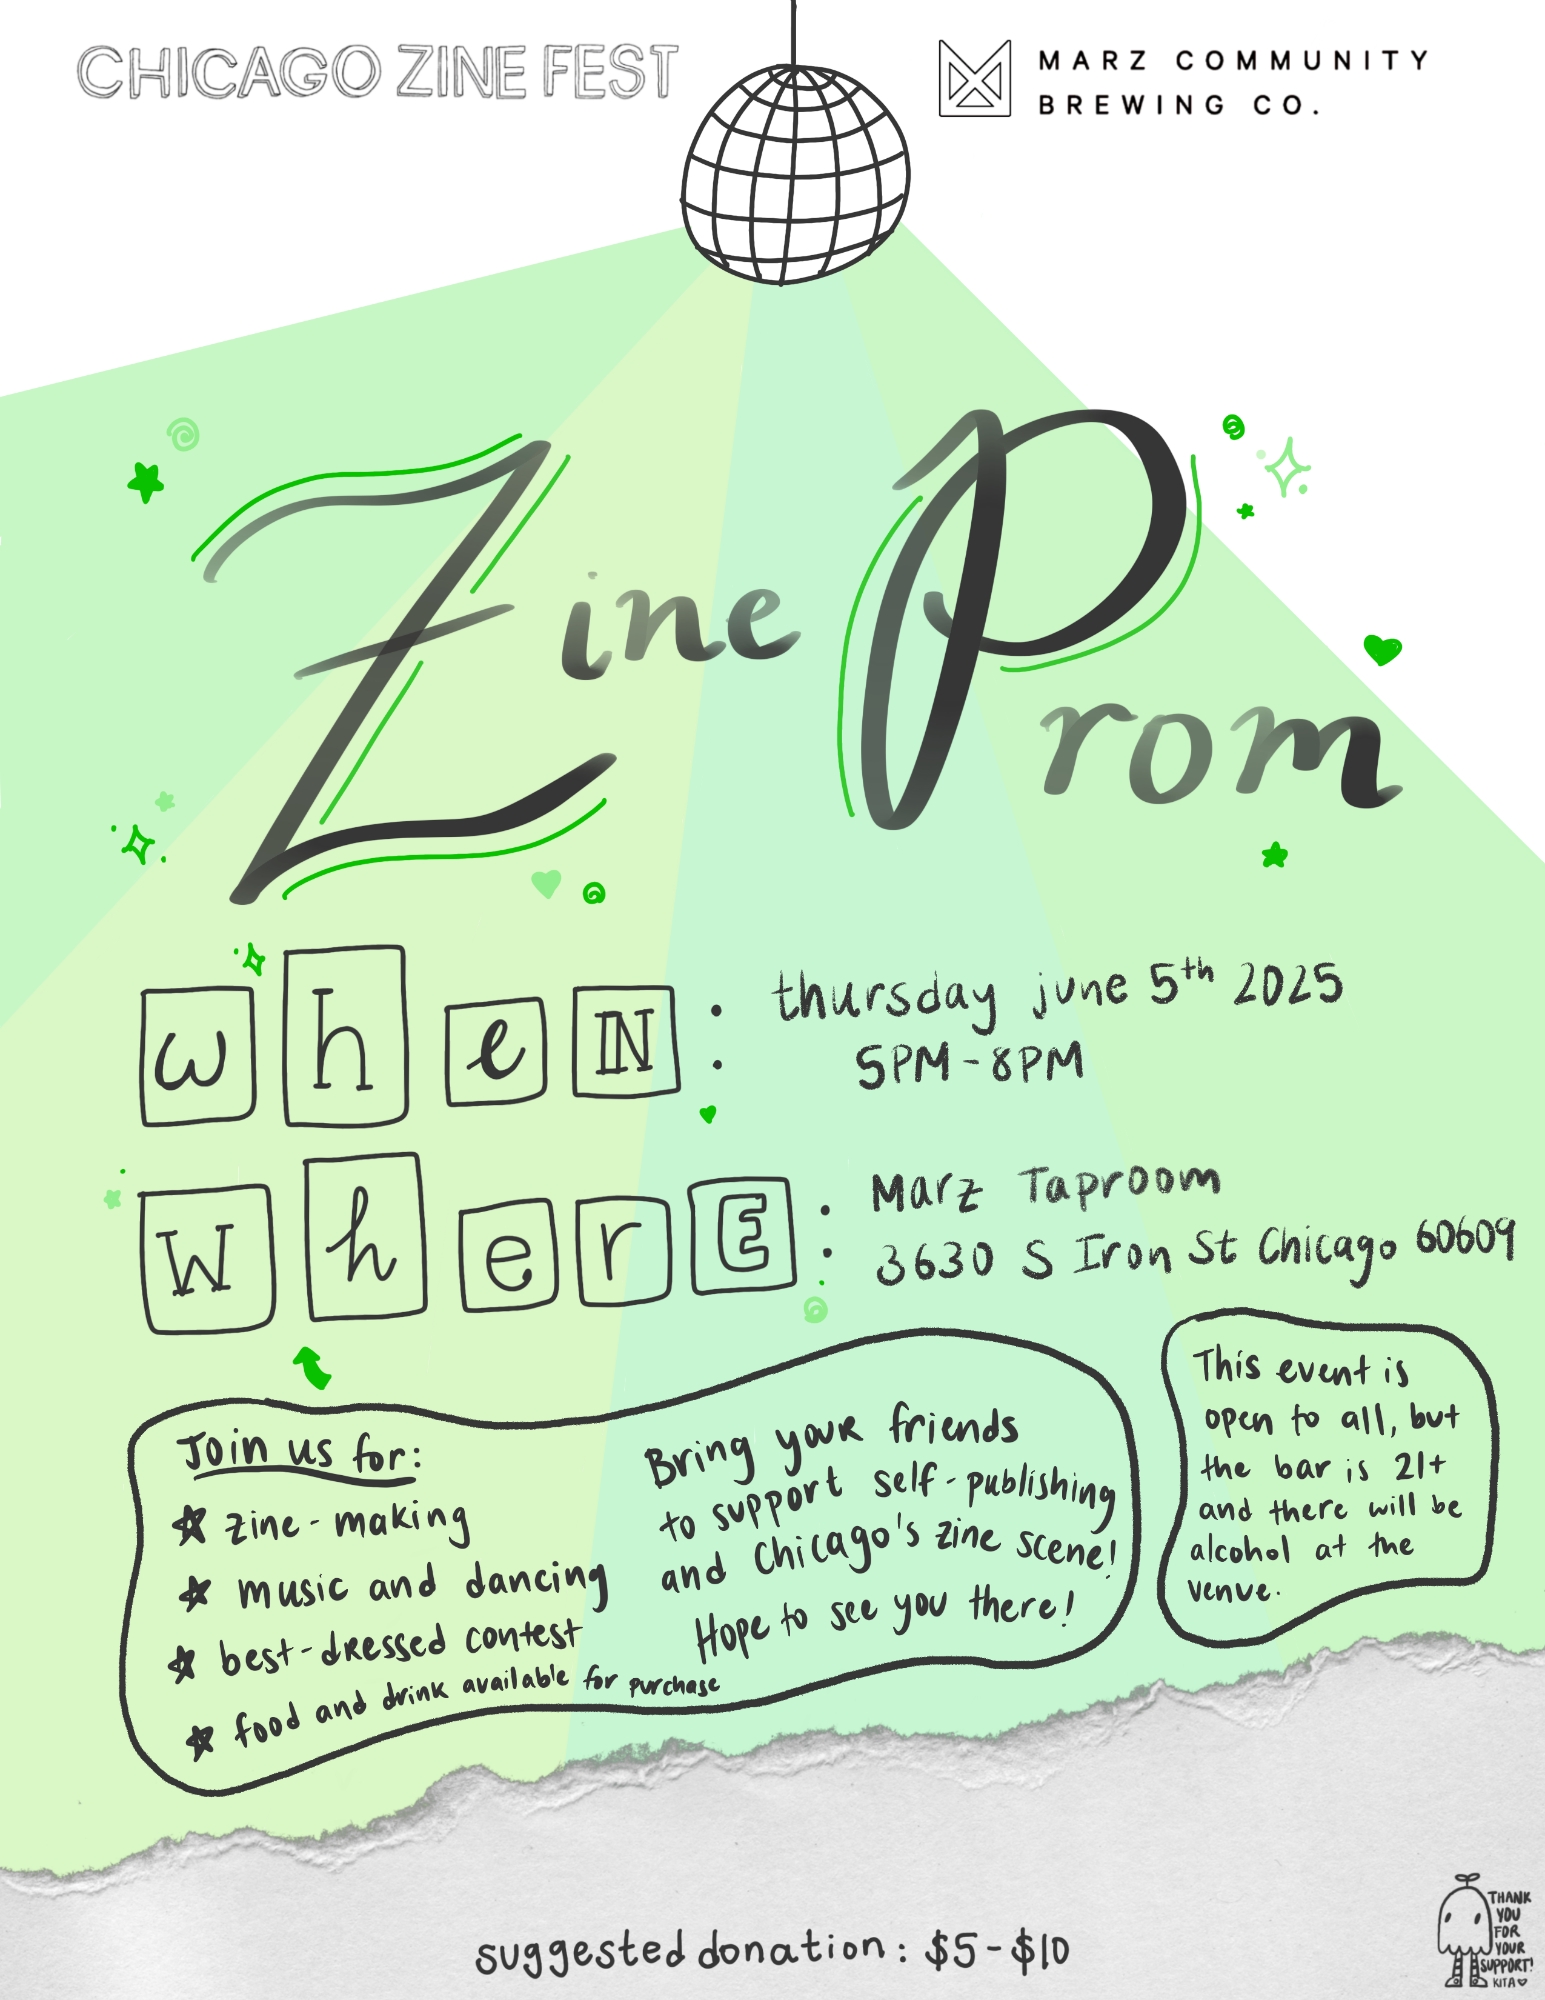 CHICAGO ZINE FEST
MARZ COMMUNITY
BREWING CO.
Zine Prom
wheN: thursday june 5th 2025
5PM-8PM
WherE: Marz Taproom
3630 S Iron St Chicago 60609
Join us for:
zine-making
music and dancing
best-dressed contest
food and drink available for purchase
Bring your friends
to support self-publishing
and Chicago's zine scene!
Hope to see you there!
This event is
open to all, but
the bar is 21+
and there will be
alcohol at the
venue.
suggested donation: $5-$10
THANK
YOU
FOR
YOUR
SUPPORT!
KITA